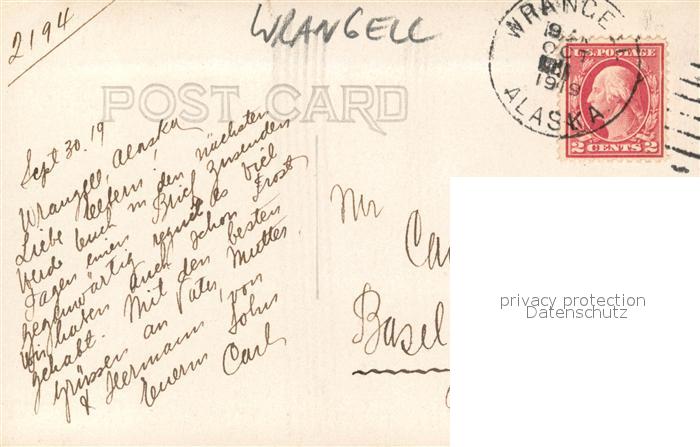 2194
WRANGELL
POST CARD
WRANGELL
OCT
1919
ALASKA
U.S. POSTAGE
2 CENTS 2
Sept 30. 19
Wrangell, Alaska
Liebe Eltern!
Werde Euch in den nächsten
Tagen einen Brief zusenden
gegenwärtig regnet es viel
wir haben auch schon Frost
gehabt. Mit den besten
Grüssen an Vater, Mutter
& Hermann, von
Euerm Sohn
Carl
Mr
Ca
Basel
privacy protection
Datenschutz